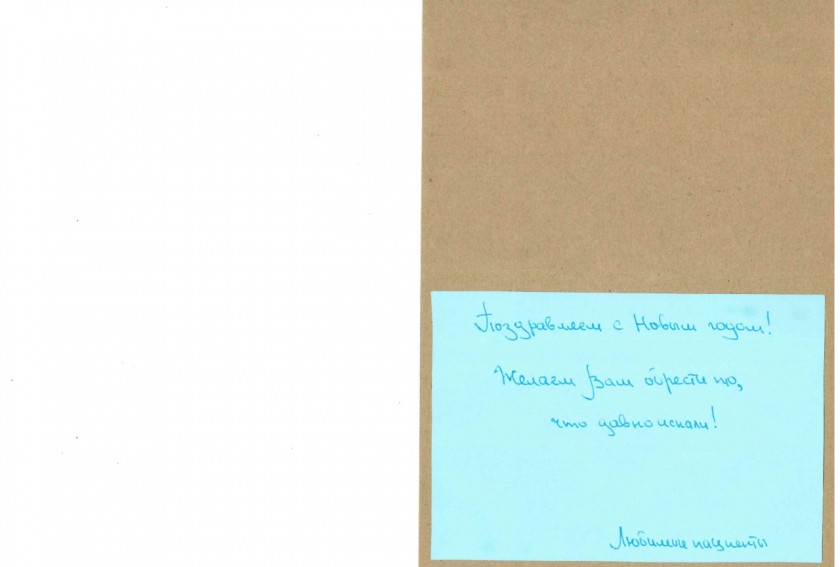 Поздравляем с Новым годом!
Желаем Вам обрести то,
что давно искали!
Любимые пациенты